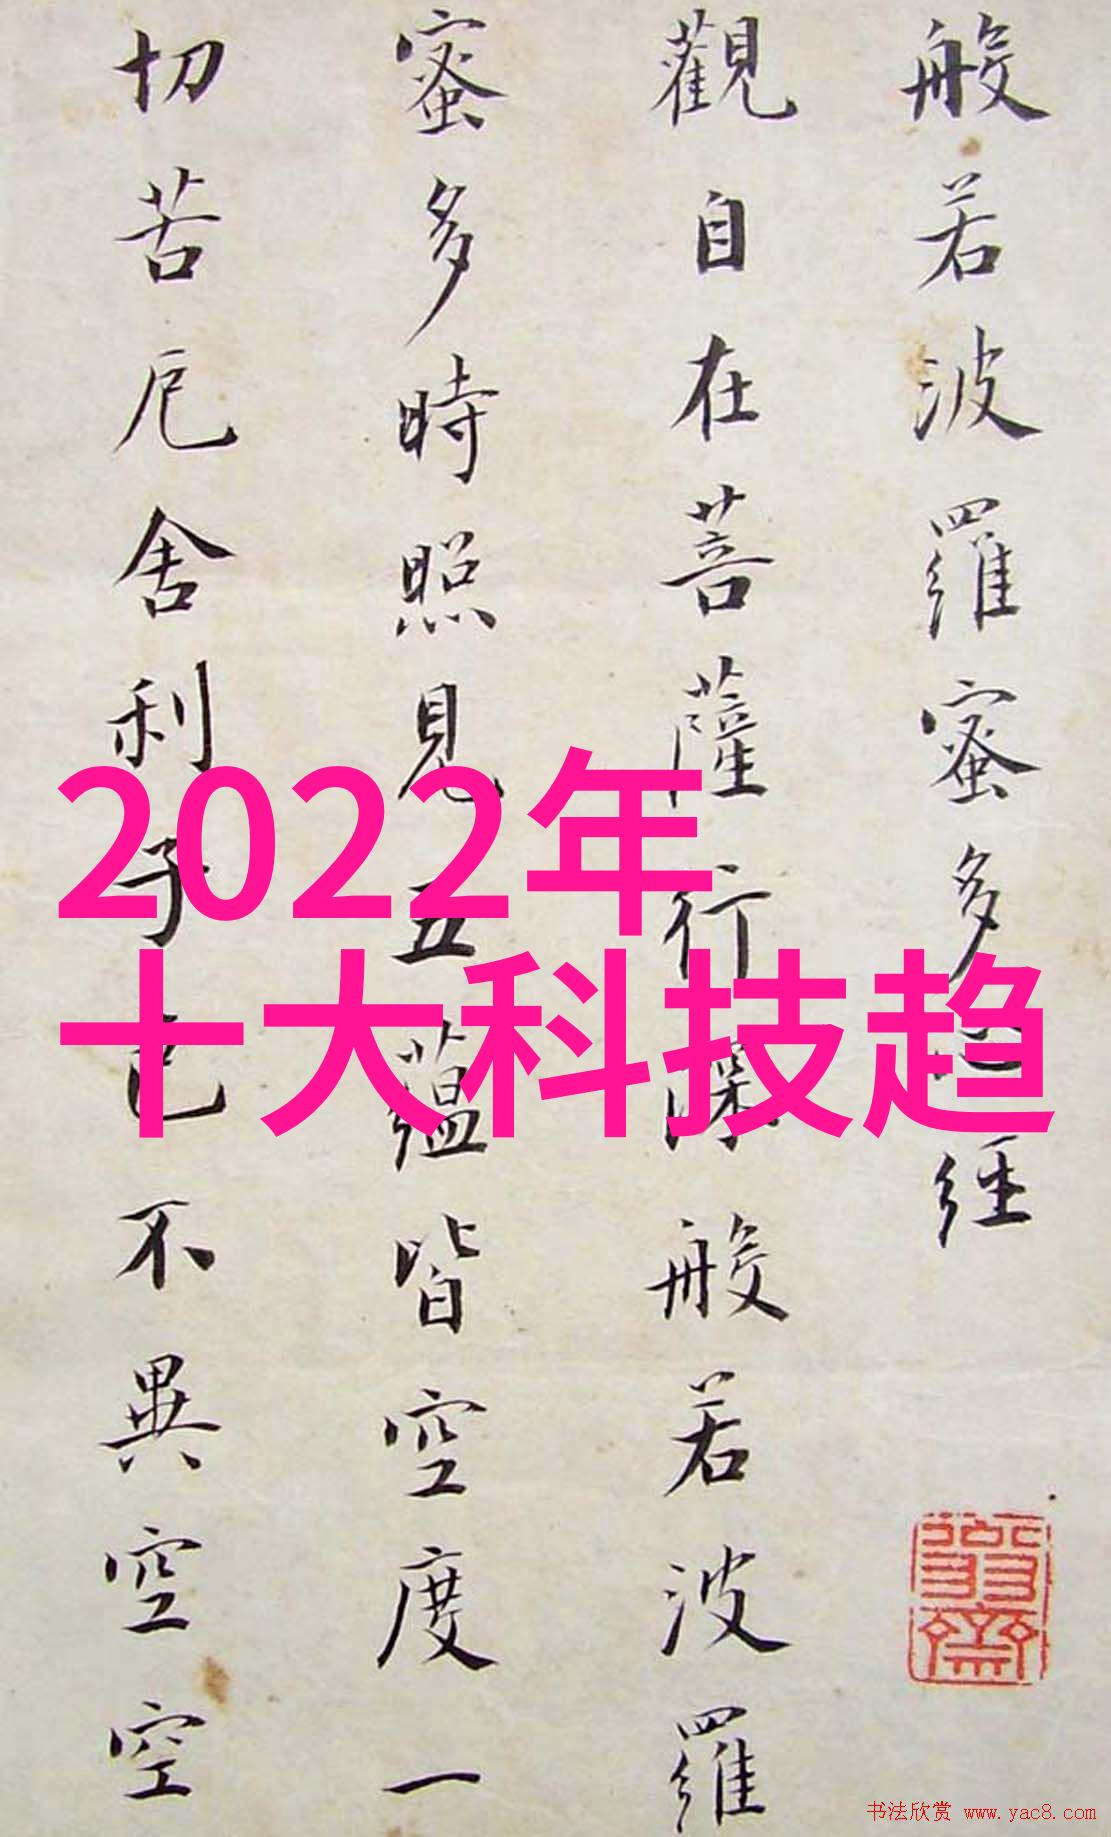 般若波羅蜜多心經
觀自在菩薩行深般若波羅
蜜多時照見五蘊皆空度一
切苦厄舍利子色不異空空
2022年
十大科技趋
书法欣赏 www.yac8.com